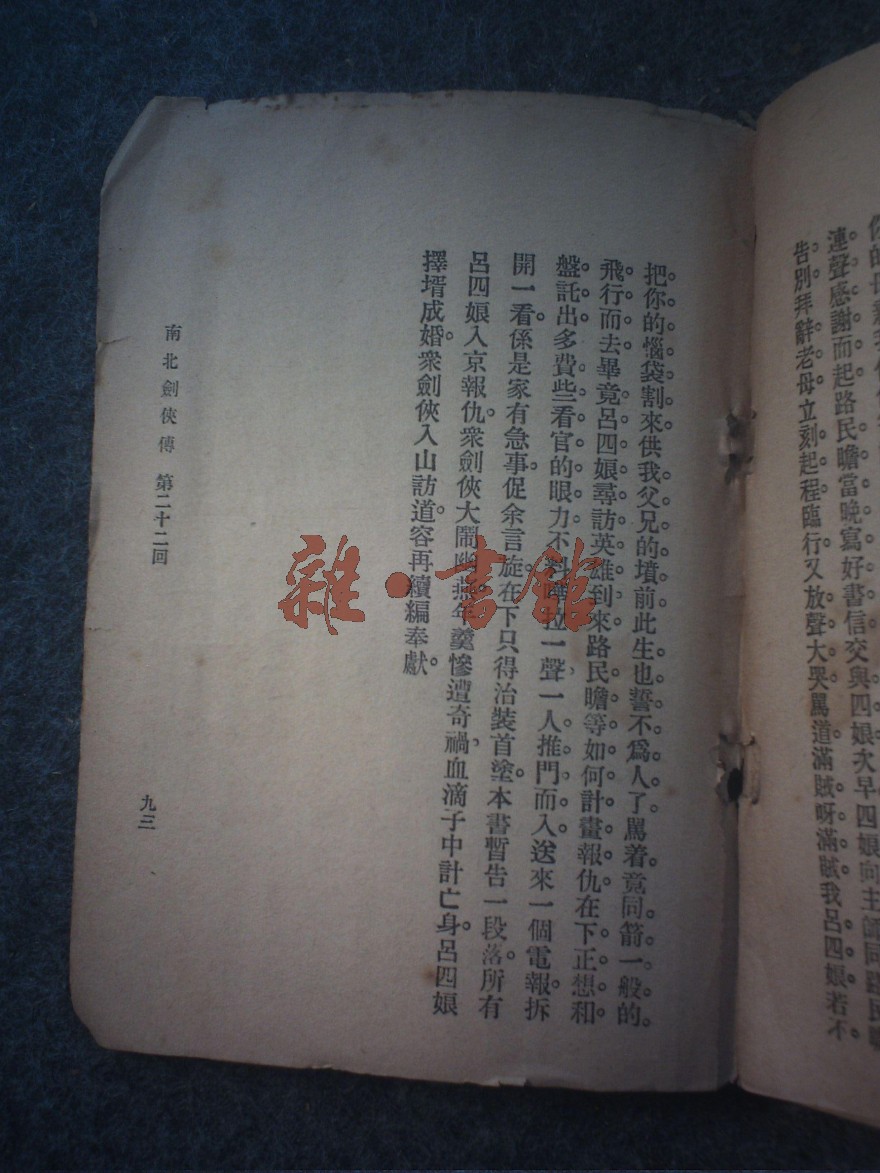 連聲感謝而起路民瞻當晚寫好書信交與四娘次早四娘向主師同路民瞻
告別拜辭老母立刻起程臨行又放聲大哭罵道滿賊呀滿賊我呂四娘若不
把你的惱袋割來供我父兄的墳前此生也誓不爲人了罵着竟同箭一般的
飛行而去畢竟呂四娘尋訪英雄到來路民瞻等如何計畫報仇在下正想和
盤託出多費些看官的眼力不料嘩拉一聲一人推門而入送來一個電報拆
開一看係是家有急事促余言旋在下只得治裝首塗本書暫告一段落所有
呂四娘入京報仇衆劍俠大鬧幽燕年羹慘遭奇禍血滴子中計亡身呂四娘
擇壻成婚衆劍俠入山訪道容再續編奉獻
南北劍俠傳 第二十二回
九三
雜·書館